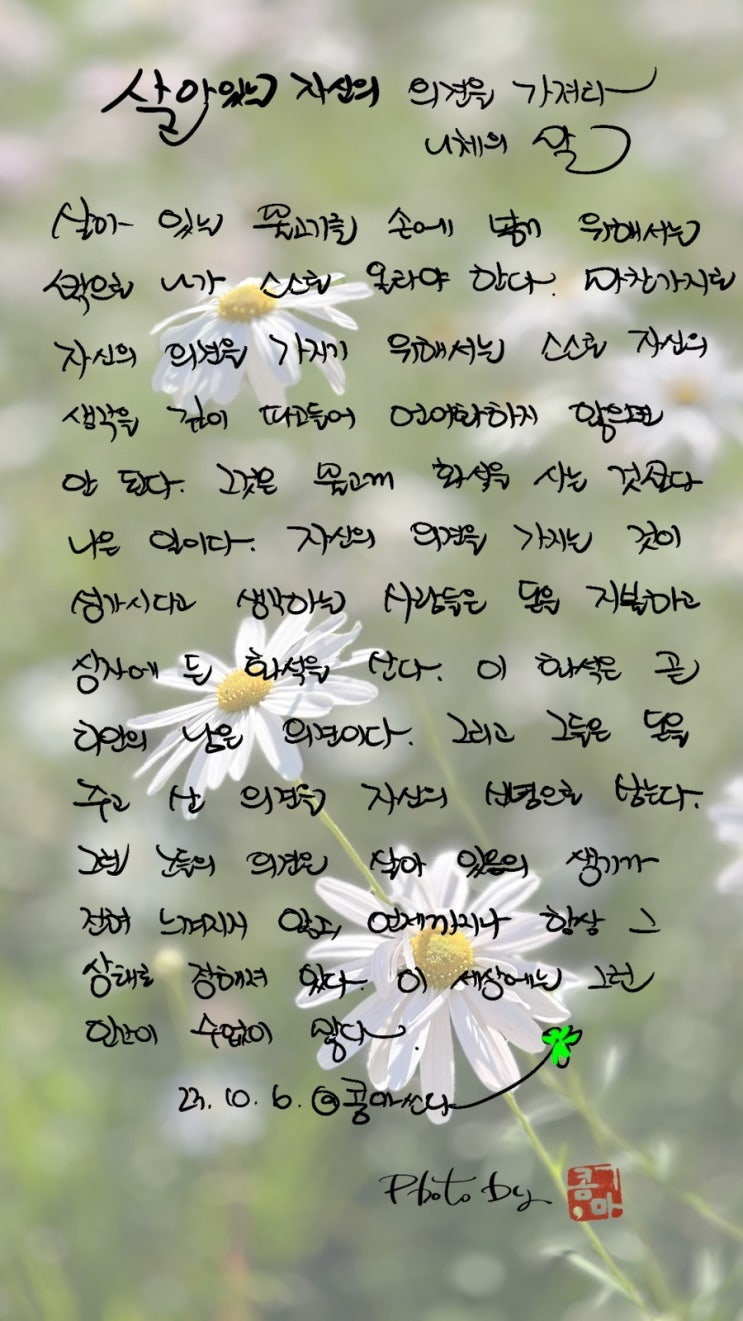 살아있는 자신의 의견을 가져라
니체의 말
살아 있는 물고기를 손에 넣기 위해서는
밖으로 나가 스스로 올라야 한다. 마찬가지로
자신의 의견을 가지기 위해서는 스스로 자신의
생각을 깊이 파고들어 언어화하지 않으면
안 된다. 그것은 물고기 화석을 사는 것보다
나은 일이다. 자신의 의견을 가지는 것이
성가시다고 생각하는 사람들은 돈을 지불하고
상자에 든 화석을 산다. 이 화석은 곧
타인의 낡은 의견이다. 그리고 그들은 돈을
주고 산 의견을 자신의 신념으로 삼는다.
그런 그들의 의견은 살아 있음의 생기가
전혀 느껴지지 않고, 언제까지나 항상 그
상태로 정해져 있다. 이 세상에는 그런
인간이 수없이 많다.
23. 10. 6. @콩마쓰다
Photo by
콩마